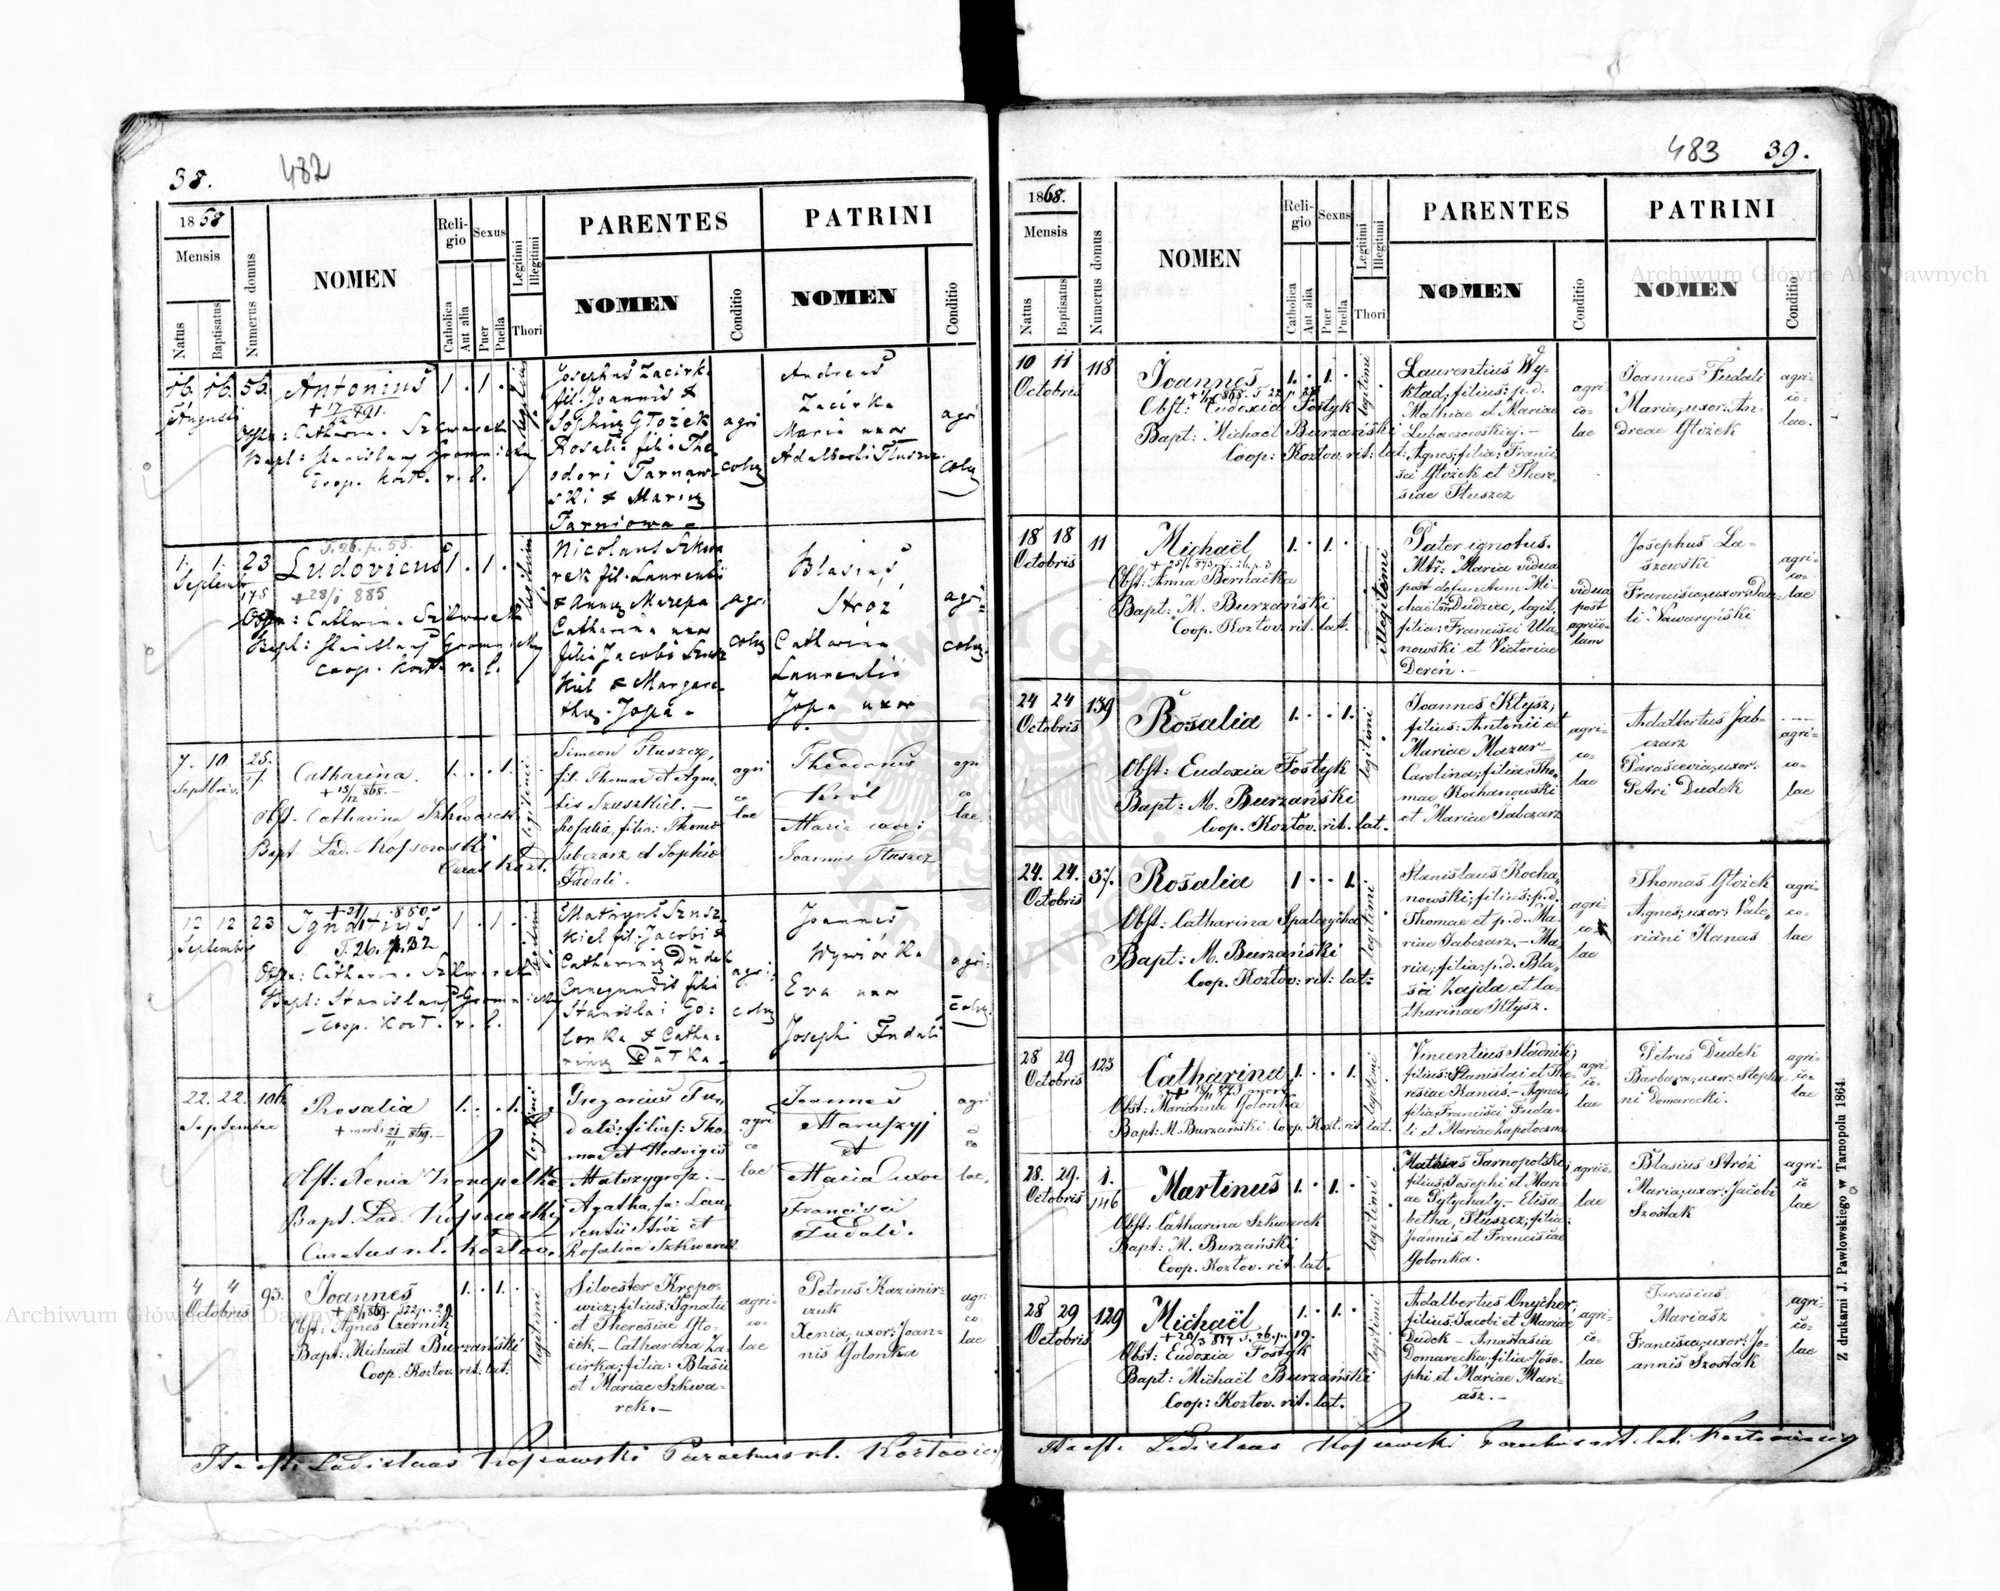 38. 482
1868
Mensis
Natus
Baptisatus
Numerus domus
NOMEN
Reli-
gio
Catholica
Aut alia
Sexus
Puer
Puella
Legitimi
Illegitimi
Thori
PARENTES
NOMEN
Conditio
PATRINI
NOMEN
Conditio
16. 16. 56.
Augusti
Antonius
1 . 1 .
Bapt: Stanislaus
Coop. r. l.
Josephus Zacirka
fil. Joannis &
Sophia Glożek
Rosalia fili The-
odori Tarnaw-
ski & Maria
Tarniowa -
agri
colæ
Andreas
Zacirka
Maria uxor
Adalberti Tłuszcz
agri
colæ
1. 1. 23
Septembr
175
T. 26. p. 55.
Ludovicus
+28/1 885
1 . 1 .
Bapt: Stanislaus
Coop. r. l.
Nicolaus Szkwa
rek fil. Laurentii
& Anna Mazepa
Catharina uxor
filia Jacobi Szusz
kiel & Margare-
tha Jopa -
agri
colæ
Blasius
Stróż
Catharina
Laurentii
Jopa uxor
agri
colæ
7. 10. 25.
Septbris.
Catharina.
+ 15/12 868. -
1 . . 1 .
legitimi
Obst. Catharina Szkwarek
Bapt. Lad. Kossowski
Curat Kozł.
Simeon Tłuszcz,
fil. Thomae et Agne-
tis Szuszkiel. -
Rosalia, filia: Thomae
Jabczarz et Sophiae
Fudali.
agri
co
lae
Theodorus
Król
Maria uxor:
Joannis Tłuszcz
agri
co
lae.
12 12 23
Septembr
Ignatius
T. 26. p. 32
1 . 1 .
Bapt: Stanislaus
Coop. Kozł. r. l.
Martinus Szusz
kiel fil. Jacobi &
Catharina Dudek
Cunegundis fili
Stanislai Go:
lonka & Catha-
rina Patka -
agri
colæ
Joannes
Wywiórka
Eva uxor
Josephi Fudali
agri:
colæ.
22. 22. 106
Septembr
Rosalia
+ mort: 21/11 869. -
1 . . 1 .
legitimi
Obst: Xenia Konopelka
Bapt. Lad. Kossowsky
Curatus r. l. Kozłov.
Gregorius Fu-
dali: filius: Tho-
mae et Hedvigis
Matuszygrosz. -
Agatha, fa: Lau-
rentii Stróż et
Rosaliae Szkwarek
agri
co
lae
Joannes
Maruszyj
et
Maria uxor
Francisci
Fudali.
agri
co
lae,
4 4 93.
Octobris
Joannes
1 . 1 .
legitimi
Obst: Agnes Czernik
Bapt: Michaël Burzański
Coop. Kozłov. rit: lat.
Silvester Krępo-
wicz; filius: Ignatii
et Theresiae Gło-
żek, - Catharina Za-
cirka; filia: Blasii
et Mariae Szkwa-
rek. -
agri-
co-
lae
Petrus Kazimir-
czuk
Xenia, uxor: Joan-
nis Golonka
agri
co-
lae
Ita est: Ladislaus Kossowski Parochus r. l. Kozłovien
483 39.
1868.
Mensis
Natus
Baptisatus
Numerus domus
NOMEN
Reli-
gio
Catholica
Aut alia
Sexus
Puer
Puella
Legitimi
Illegitimi
Thori
PARENTES
NOMEN
Conditio
PATRINI
NOMEN
Conditio
10 11 118
Octobris
Joannes
1. . 1 .
legitimi
Obst: Eudoxia Fostyk
Bapt: Michaël Burzański
Coop: Kozłov. rit: lat:
Laurentius Wy-
kład, filius: p. d.
Mathiae et Mariae
Lubaczowskiej. -
Agnes; filia: Franci-
sci Głożek et There-
siae Tłuszcz
agri-
co-
lae
Joannes Fudali
Maria, uxor: An-
dreae Głożek
agri-
co-
lae.
18 18 11
Octobris
Michaël
1. . 1 .
illegitimi
Obst: Anna Bernacka
Bapt: M. Burzański
Coop. Kozłov. rit. lat.
Pater ignotus.
Mtr: Maria vidua
post defunctum Mi-
chaëlem Dudziec, legit.
filia: Francisci Ula-
nowski et Victoriae
Dereń. -
vidua
post
agrico-
lam
Josephus La-
szewski
Francisca, uxor: Pau-
li Nawaryński
agri-
co-
lae
24 24 139
Octobris
Rosalia
1. . . 1.
legitimi
Obst: Eudoxia Fostyk
Bapt: M. Burzański
Coop. Kozłov. rit. lat.
Joannes Kłysz;
filius: Antonii et
Mariae Mazur
Carolina; filia: Tho-
mae Kochanowski
et Mariae Jabczarz
agri-
co-
lae
Adalbertus Jab-
czarz
Parascevia, uxor:
Petri Dudek
agri-
co-
lae
24. 24. 37.
Octobris
Rosalia
1 . . 1.
legitimi
Obst: Catharina Spalczycha
Bapt: M. Burzański
Coop. Kozłov: rit: lat:
Stanislaus Kocha-
nowski; filius: p. d.
Thomae et p. d. Ma-
riae Jabczarz, - Ma-
ria; filia: p. d. Bla-
sii Zajda et Ca-
tharinae Kłysz.
agri-
co-
lae
Thomas Głożek
Agnes; uxor: Vale-
riani Kanas
agri-
co-
lae
28 29 123
Octobris
Catharina
1. . . 1.
legitimi
Obst: Marianna Golonka
Bapt: M. Burzański Coop. Kozł. rit. lat.
Vincentius Stadnik;
filius: Stanislai et The-
resiae Kanas. - Agnes;
filia: Francisci Fuda-
li et Mariae Zapotoczna
agri-
co-
lae
Petrus Dudek
Barbara, uxor: Stepha-
ni Domarecki.
agri-
co-
lae
28. 29. 1.
Octobris 146
Martinus
1. . 1.
legitimi
Obst: Catharina Szkwarek
Bapt: M. Burzański
Coop. Kozłov. rit. lat.
Mathias Tarnopolski;
filius; Josephi et Mari-
ae Pytychaty. - Elisa-
betha, Tłuszcz; filia:
Joannis et Franciscae
Golonka.
agri-
lae
Blasius Stróż
Maria; uxor: Jacobi
Szostak
agri-
co
lae
28 29 129
Octobris
Michaël
1. . 1.
legitimi
Obst: Eudoxia Fostyk
Bapt: Michaël Burzański
Coop: Kozłov. rit. lat.
Adalbertus Onycher;
filius: Jacobi et Mariae
Dudek - Anastasia
Domarecka, filia: Jose-
phi et Mariae Mari-
asz. -
agri-
co-
lae
Tarasius
Mariasz
Francisca; uxor: Jo-
annis Szostak
agri-
co-
lae
Ita est: Ladislaus Kossowski Parochus rit. lat. Kozłoviensis
Z drukarni J. Pawłowskiego w Tarnopolu 1864.
Archiwum Główne Akt Dawnych
Archiwum Główne Akt Dawnych